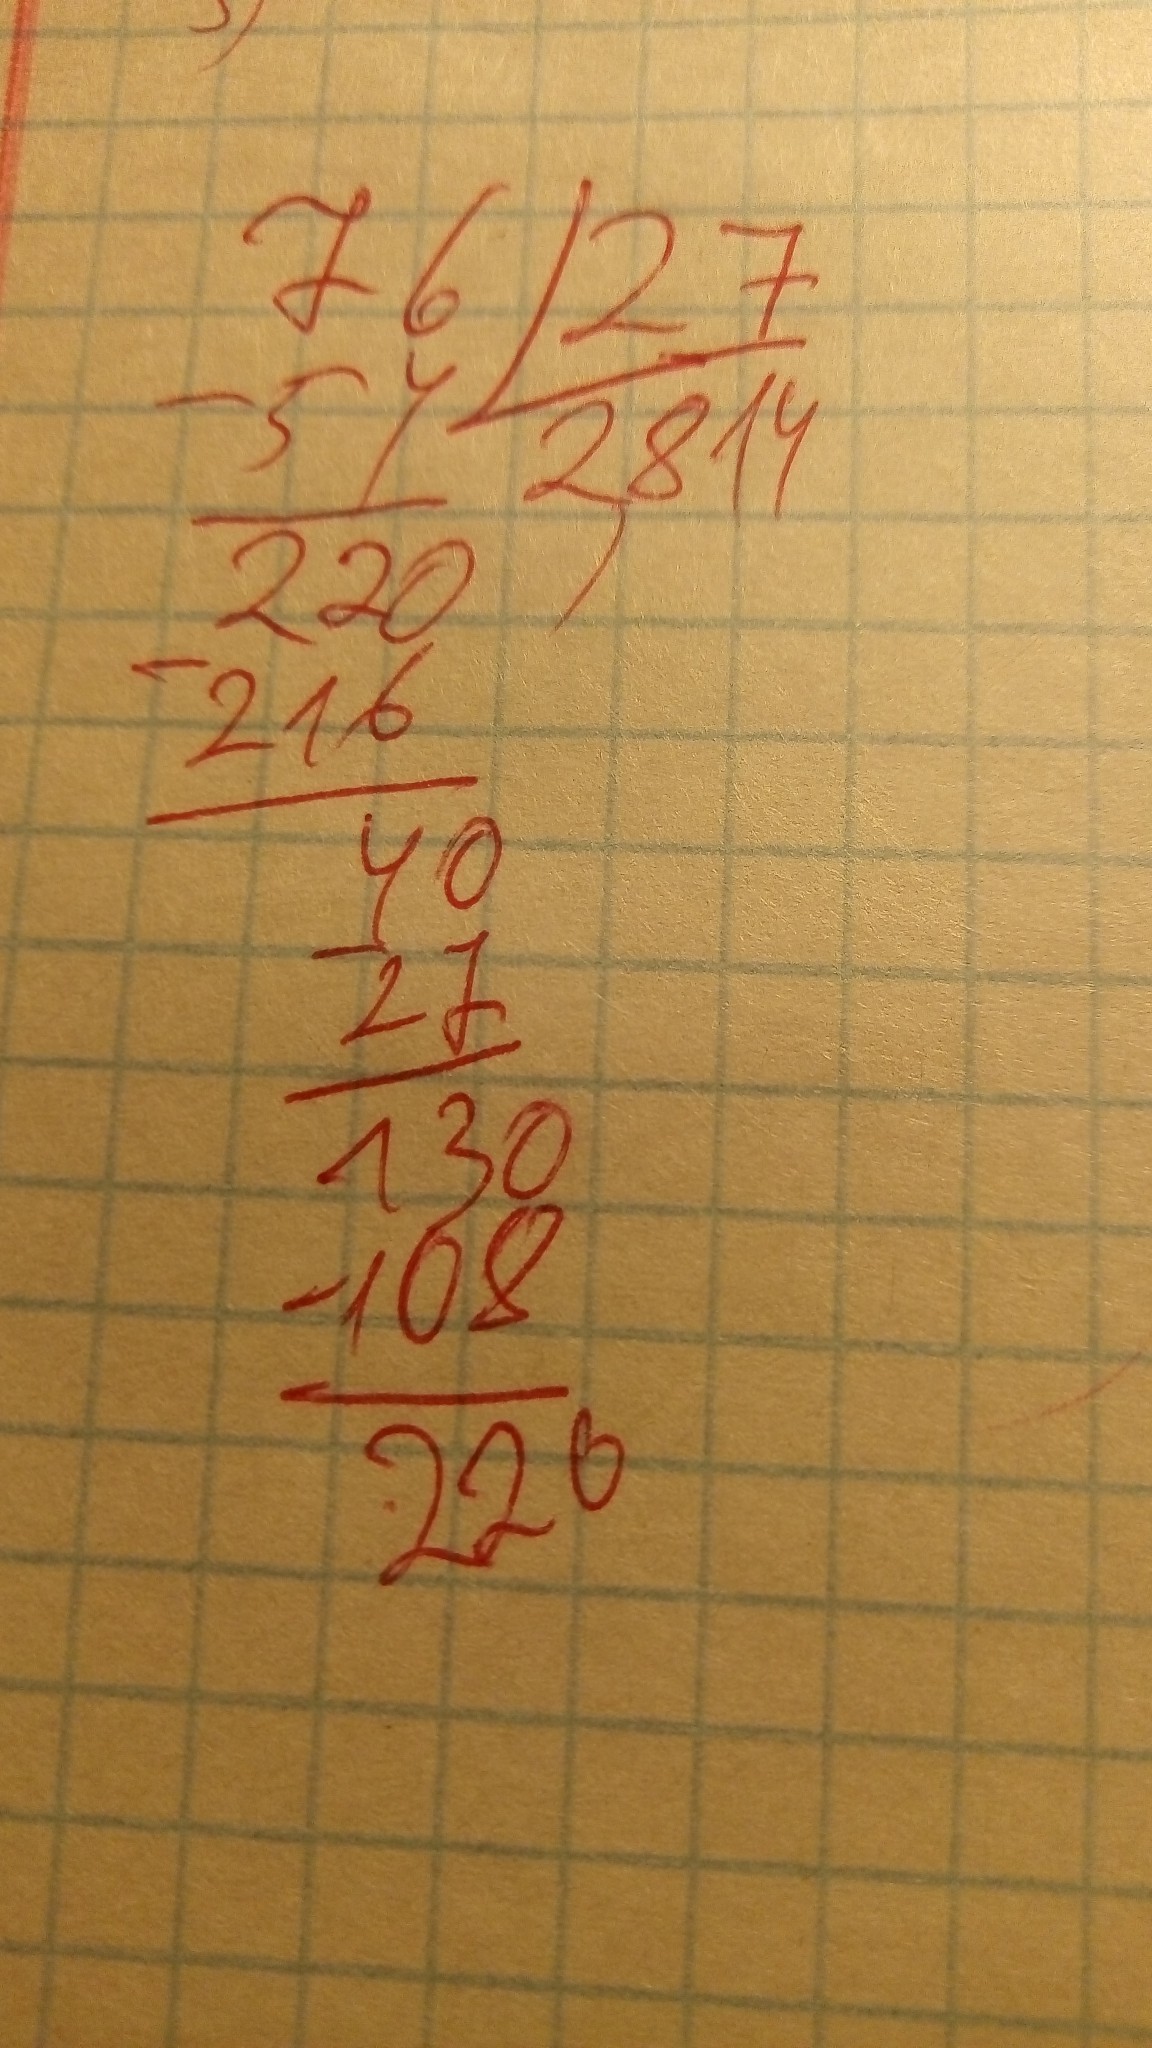 5)
76 27
-54 2,814
220
-216
40
-27
130
-108
220